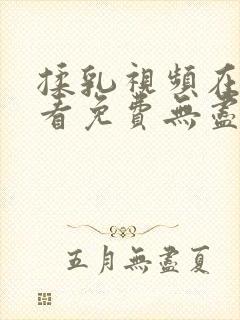 揉乳視頻在
看免費無盡
五月無盡夏